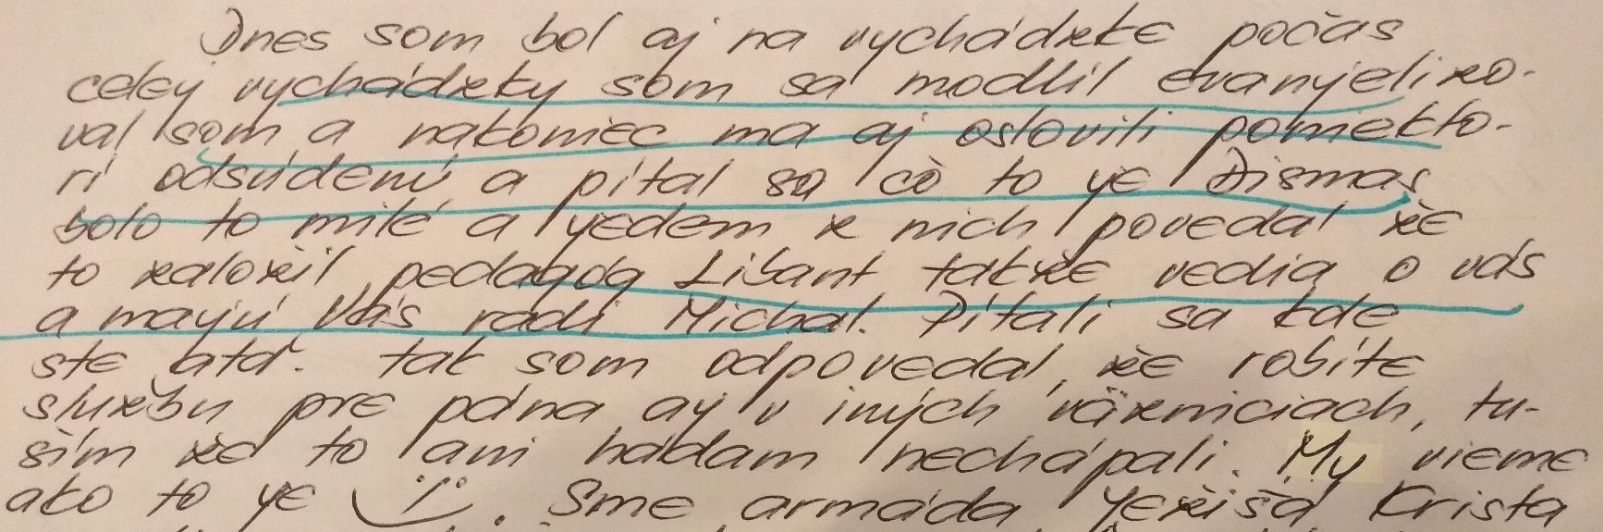 Dnes som bol aj na vychádzke počas
celej vychádzky som sa modlil evanjelizo-
val som a nakoniec ma aj oslovili poniekto-
rí odsúdení a pítal sa čo to je Dismas
bolo to milé a jeden z nich povedal že
to založil pedagóg Libant takže vedia o vás
a majú Vás radi Michal. Pítali sa kde
ste atď. tak som odpovedal, že robíte
službu pre pána aj v iných väzniciach, tu-
ším že to ani hádam nechápali. My vieme
ako to je . Sme armáda Ježiša Krista